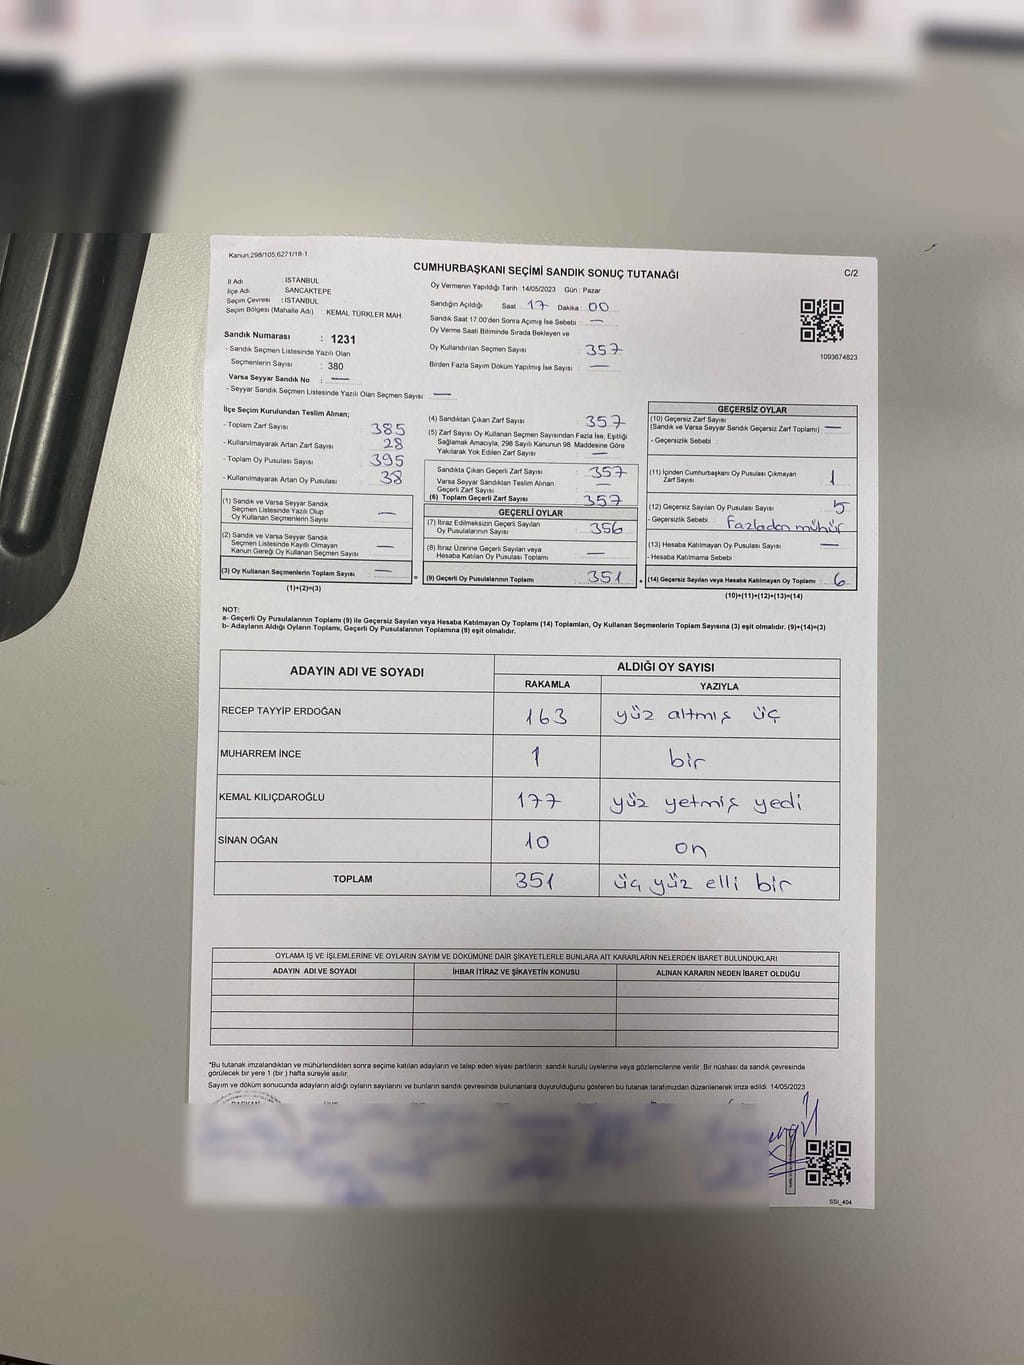 Kanun,298/105,6271/18-1
CUMHURBAŞKANI SEÇİMİ SANDIK SONUÇ TUTANAĞI
C/2
İl Adı : İSTANBUL
İlçe Adı : SANCAKTEPE
Seçim Çevresi : İSTANBUL
Seçim Bölgesi (Mahalle Adı) : KEMAL TÜRKLER MAH.
Sandık Numarası : 1231
- Sandık Seçmen Listesinde Yazılı Olan
Seçmenlerin Sayısı : 380
Varsa Seyyar Sandık No : —
- Seyyar Sandık Seçmen Listesinde Yazılı Olan Seçmen Sayısı : —
Oy Vermenin Yapıldığı Tarih : 14/05/2023 Gün : Pazar
Sandığın Açıldığı Saat : 17 Dakika : 00
Sandık Saat 17:00'den Sonra Açımış İse Sebebi : —
Oy Verme Saati Bitiminde Sırada Bekleyen ve
Oy Kullandırılan Seçmen Sayısı : 357
Birden Fazla Sayım Döküm Yapılmış İse Sayısı : —
1093674823
İlçe Seçim Kurulundan Teslim Alınan;
- Toplam Zarf Sayısı : 385
- Kullanılmayarak Artan Zarf Sayısı : 28
- Toplam Oy Pusulası Sayısı : 395
- Kullanılmayarak Artan Oy Pusulası : 38
(1) Sandık ve Varsa Seyyar Sandık
Seçmen Listesinde Yazılı Olup
Oy Kullanan Seçmenlerin Sayısı : —
(2) Sandık ve Varsa Seyyar Sandık
Seçmen Listesinde Kayıtlı Olmayan
Kanun Gereği Oy Kullanan Seçmen Sayısı : —
(3) Oy Kullanan Seçmenlerin Toplam Sayısı : —
(1)+(2)=(3)
(4) Sandıktan Çıkan Zarf Sayısı : 357
(5) Zarf Sayısı Oy Kullanan Seçmen Sayısından Fazla İse, Eşitliği
Sağlamak Amacıyla, 298 Sayılı Kanunun 98. Maddesine Göre
Yakılarak Yok Edilen Zarf Sayısı : —
Sandıkta Çıkan Geçerli Zarf Sayısı : 357
Varsa Seyyar Sandıktan Teslim Alınan
Geçerli Zarf Sayısı : —
(6) Toplam Geçerli Zarf Sayısı : 357
GEÇERLİ OYLAR
(7) İtiraz Edilmeksizin Geçerli Sayılan
Oy Pusulalarının Sayısı : 356
(8) İtiraz Üzerine Geçerli Sayılan veya
Hesaba Katılan Oy Pusulası Toplamı : —
= (9) Geçerli Oy Pusulalarının Toplamı : 351
GEÇERSİZ OYLAR
(10) Geçersiz Zarf Sayısı
(Sandık ve Varsa Seyyar Sandık Geçersiz Zarf Toplamı) : —
- Geçersizlik Sebebi :
(11) İçinden Cumhurbaşkanı Oy Pusulası Çıkmayan
Zarf Sayısı : 1
(12) Geçersiz Sayılan Oy Pusulası Sayısı : 5
- Geçersizlik Sebebi : Fazladan mühür
(13) Hesaba Katılmayan Oy Pusulası Sayısı : —
- Hesaba Katılmama Sebebi :
+ (14) Geçersiz Sayılan veya Hesaba Katılmayan Oy Toplamı : 6
(10)+(11)+(12)+(13)=(14)
NOT:
a- Geçerli Oy Pusulalarının Toplamı (9) ile Geçersiz Sayılan veya Hesaba Katılmayan Oy Toplamı (14) Toplamları, Oy Kullanan Seçmenlerin Toplam Sayısına (3) eşit olmalıdır. (9)+(14)=(3)
b- Adayların Aldığı Oyların Toplamı, Geçerli Oy Pusulalarının Toplamına (9) eşit olmalıdır.
ADAYIN ADI VE SOYADI ALDIĞI OY SAYISI
RAKAMLA YAZIYLA
RECEP TAYYİP ERDOĞAN 163 yüz altmış üç
MUHARREM İNCE 1 bir
KEMAL KILIÇDAROĞLU 177 yüz yetmiş yedi
SİNAN OĞAN 10 on
TOPLAM 351 üç yüz elli bir
OYLAMA İŞ VE İŞLEMLERİNE VE OYLARIN SAYIM VE DÖKÜMÜNE DAİR ŞİKAYETLERLE BUNLARA AİT KARARLARIN NELERDEN İBARET BULUNDUKLARI
ADAYIN ADI VE SOYADI İHBAR İTİRAZ VE ŞİKAYETİN KONUSU ALINAN KARARIN NEDEN İBARET OLDUĞU
*Bu tutanak imzalandıktan ve mühürlendikten sonra seçime katılan adayların ve talep eden siyasi partilerin sandık kurulu üyelerine veya gözlemcilerine verilir. Bir nüshası da sandık çevresinde
görülecek bir yere 1 (bir ) hafta süreyle asılır.
Sayım ve döküm sonucunda adayların aldığı oyların sayılarını ve bunların sandık çevresinde bulunanlara duyurulduğunu gösteren bu tutanak tarafımızdan düzenlenerek imza edildi. 14/05/2023
BAŞKAN
SSI_404